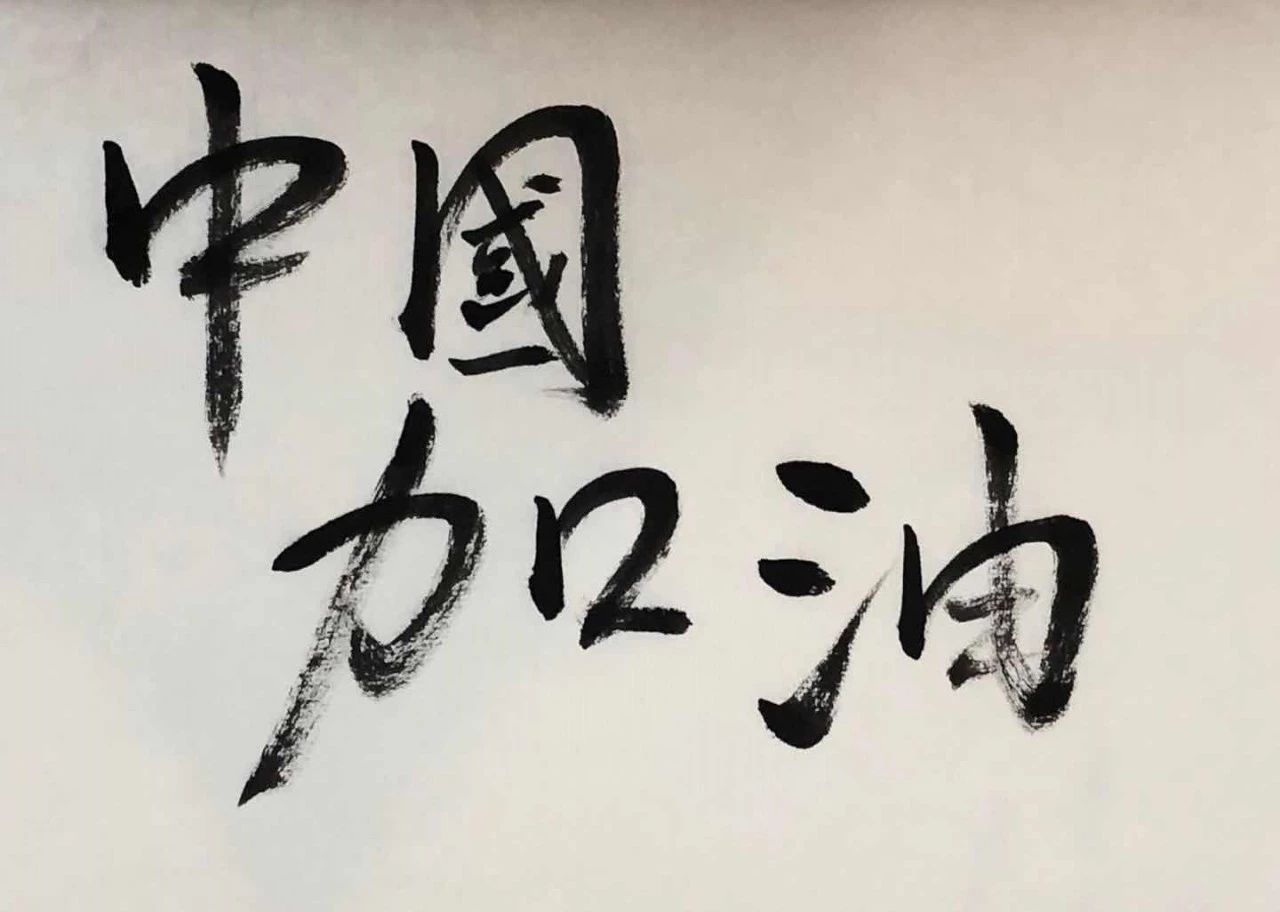 中國
加油